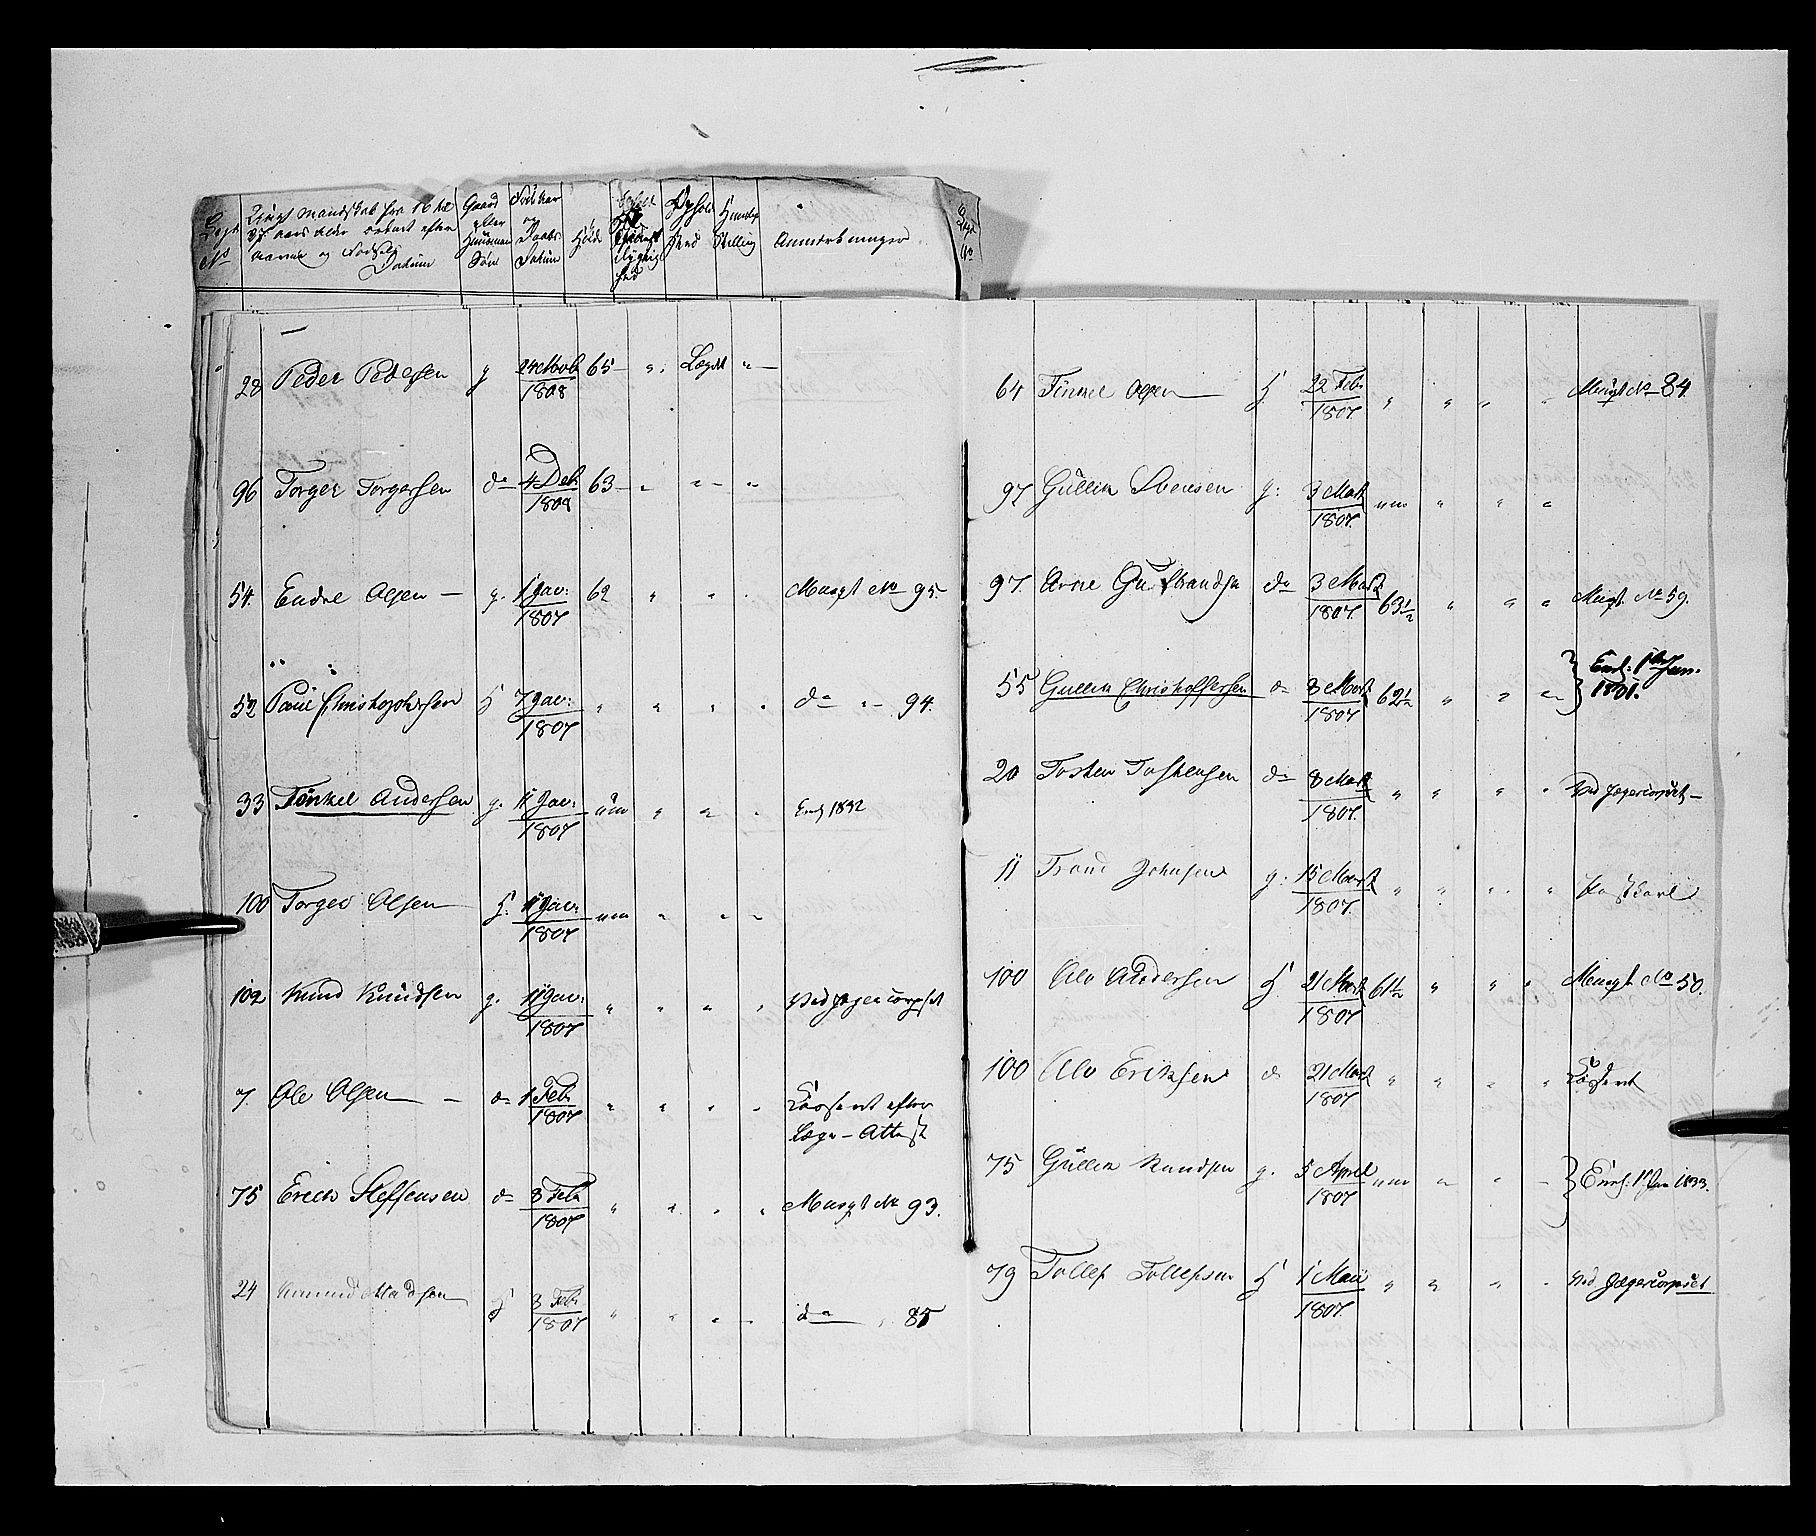 Lægd No
Ungt Mandskab fra 16 til
Aars Alder anført efter
Navne og Fødsels
Datum
Gaard eller Huusmands Søn
Fødsels og Daabs Datum
Høide
Opholdssted
Huuslig Stilling
Anmærkninger
Lægd No
28 Peder Pedersen g 24 Novb 1808 65 " Lægdet " —
96 Torger Torgersen do 4 Deb 1808 63 " " "
54 Endre Olsen — g. 1 Jav: 1807 62 " " " Mungt No 95.
52 Paul Christophersen H 7 Jav: 1807 " " " " do " 94.
33 Tönkel Andersen g. 11 Jav: 1807 um " " " Enrl 1832
100 Torger Olsen H. 11 Jav: 1807 um " " "
102 Knud Knudsen g. 11 Jav: 1807 " " " " Ved Jægercorpset
7. Ole Olsen — do 1 Feb: 1807 " " " " Casseret efter
Læge-Attest
75 Erich Steffensen do 3 Feb 1807 " " " " Mungt No 93.
24 Amund Madsen H 3 Feb: 1807 " " " " do " 85
64 Tönkel Olsen H 22 Feb: 1807 " " " " Mungt No 84.
97 Gullik Svensen g: 3 Mart 1807. um " " "
97. Arne Gulbrandsn do 3 Mart 1807. 63½ " " " Mungt. No 59.
55 Gullik Christoffersen do 8 Mart 1807 62½ " " " } Enrl: 1ste Jan. 1831.
20 Tosten Tostensen do 8 Mart 1807. " " " " Ved Jægercorpset —
11 Trond Johnsen g: 15 Mart 1807. " " " " Postkarl
100 Ole Andersen H 21 Mart 1807 61½ " " " Mungt No 50.
100 Ole Eriksen do 21 Mart 1807 " " " " Casseret
75 Gullik Knudsen g. 5 April 1807 um " " " } Enrl: 1 Jan 1833.
79 Tollef Tollefsen H 1 Maii 1807. " " " " Ved Jægercorpset